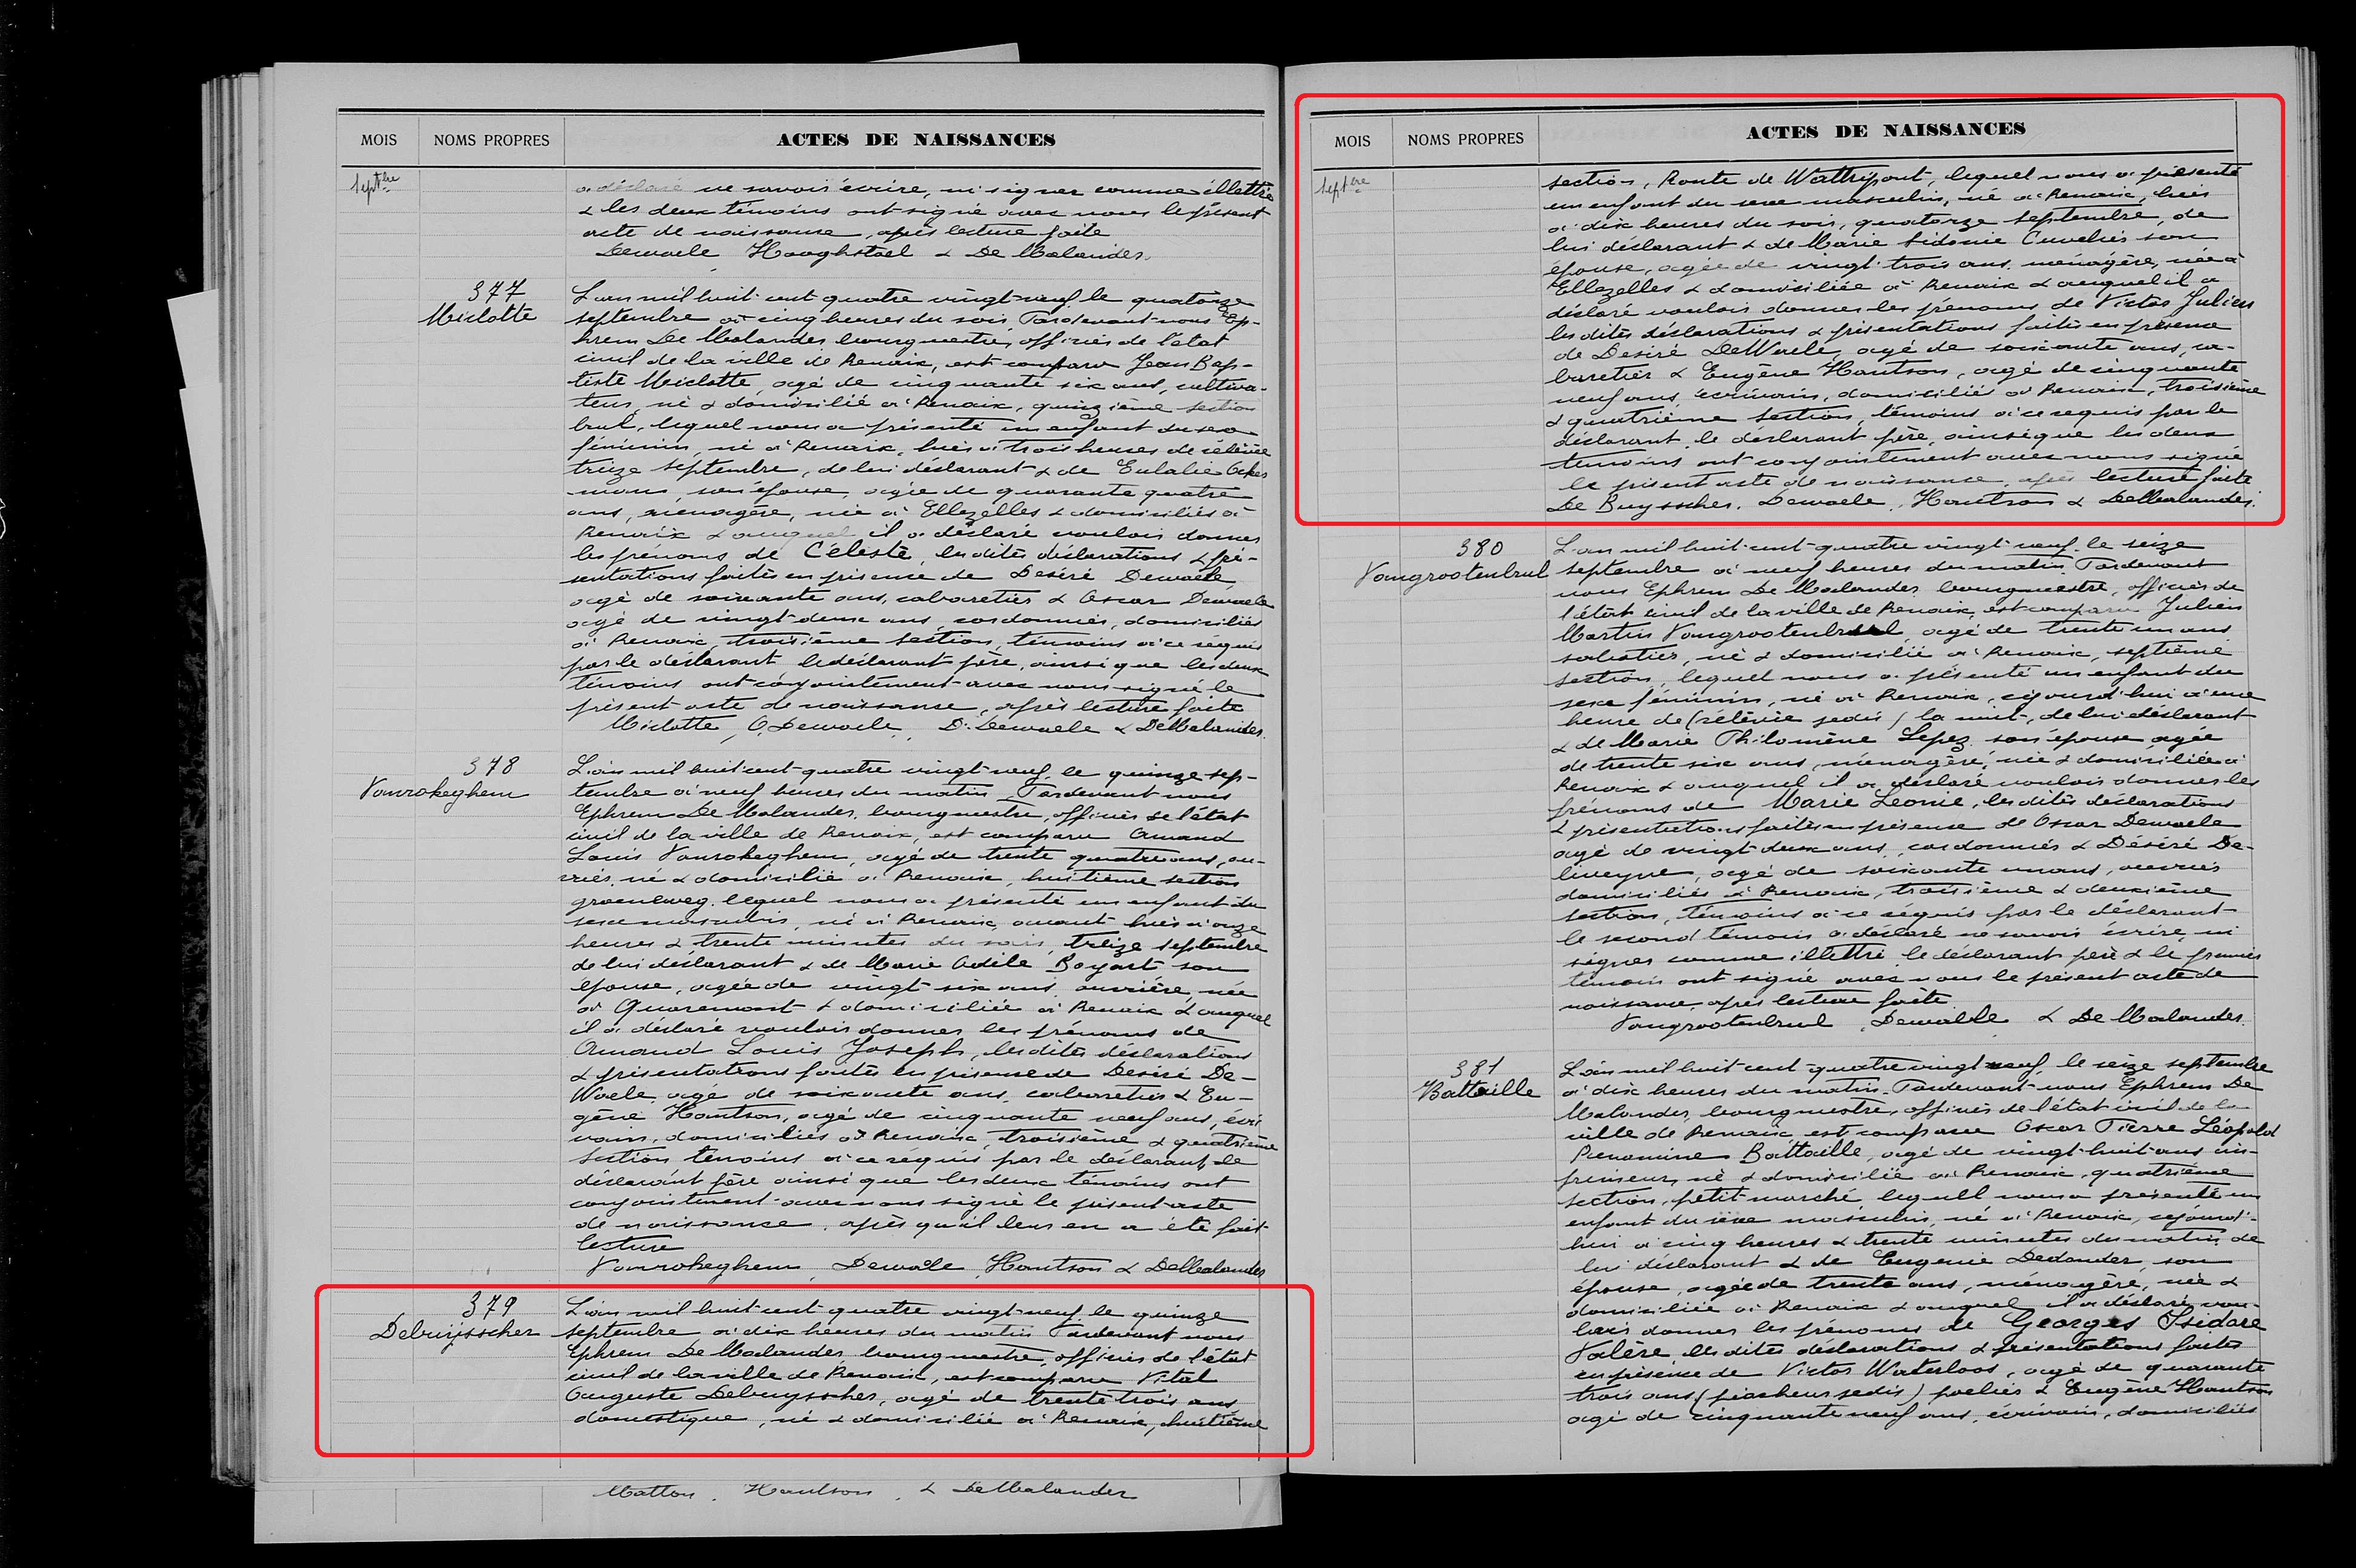 MOIS NOMS PROPRES ACTES DE NAISSANCES
Septbre
a déclaré ne savoir écrire, ni signer comme illettré
& les deux témoins ont signé avec nous le présent
acte de naissance, après lecture faite
Dewaele Hooghstoel & De Malander.
377
Miclotte
L'an mil huit cent quatre vingt-neuf le quatorze
septembre à cinq heures du soir, Pardevant nous Ep-
hrem De Malander bourgmestre, officier de l'état
civil de la ville de Renaix, est comparu Jean Bap-
tiste Miclotte, agé de cinquante six ans, cultiva-
teur, né & domicilié à Renaix, quinzième section
brul, lequel nous a présenté un enfant du sexe
féminin, né à Renaix, hier à trois heures de rélévée
treize septembre, de lui déclarant & de Eulalie
son épouse, agée de quarante quatre
ans, ménagère, née à Ellezelles & domiciliée à
Renaix & auquel il a déclaré vouloir donner
les prénoms de Céleste, les dites déclarations & pré-
sentations faites en présence de Desiré Dewaele
agé de soixante ans, cabaretier & Oscar Dewaele
agé de vingt-deux ans, cordonnier, domiciliés
à Renaix, troisième section, témoins à ce réquis
par le déclarant le déclarant père, ainsi que les deux
témoins ont conjointement avec nous signé le
présent acte de naissance, après lecture faite
Miclotte, O. Dewaele, D. Dewaele & DeMalander.
378
Vanrokeghem
L'an mil huit cent quatre vingt-neuf le quinze sep-
tembre à neuf heures du matin, Pardevant nous
Ephrem De Malander, bourgmestre, officier de l'état
civil de la ville de Renaix, est comparu Amand
Louis Vanrokeghem, agé de trente quatre ans, ou-
vrier, né & domicilié à Renaix, huitième section
groenweg, lequel nous a présenté un enfant du
sexe masculin, né à Renaix, avant-hier à onze
heures & trente minutes du soir, treize septembre
de lui déclarant & de Marie Adèle Boyart son
épouse, agée de vingt six ans, ouvrière, née
à Quaremont & domiciliée à Renaix & auquel
il a déclaré vouloir donner les prénoms de
Amand Louis Joseph, les dites déclarations
& présentations faites en présence de Desiré De-
Waele agé de soixante ans, cabaretier & Eu-
gène Hantson, agé de cinquante neuf ans, écri
vain, domiciliés à Renaix, troisième & quatrième
section témoins à ce réquis par le déclarant, le
déclarant père ainsi que les deux témoins ont
conjointement avec nous signé le présent acte
de naissance, après qu'il leur en a été fait
lecture
Vanrokeghem, Dewaele, Hantson & DeMalander
379
Debuysscher
L'an mil huit cent quatre vingt-neuf le quinze
septembre à dix heures du matin Pardevant nous
Ephrem De Malander bourgmestre, officier de l'état
civil de la ville de Renaix, est comparu Vital
Auguste Debuysscher, agé de trente trois ans
domestique, né & domicilié à Renaix, huitième
Matton, Hantson, & DeMalander
MOIS NOMS PROPRES ACTES DE NAISSANCES
Septbre
section, Route de Wattripont, lequel nous a présenté
un enfant du sexe masculin, né à Renaix, hier
à dix heures du soir, quatorze septembre, de
lui déclarant & de Marie Sidonie Cuvelier son
épouse, agée de vingt-trois ans, ménagère, née à
Ellezelles & domiciliée à Renaix & auquel il a
déclaré vouloir donner les prénoms de Victor Julien
les dites déclarations & présentations faites en présence
de Desiré DeWaele, agé de soixante ans, ca-
baretier & Eugène Hantson, agé de cinquante
neuf ans, écrivain, domiciliés à Renaix, troisième
& quatrième section, témoins à ce requis par le
déclarant, le déclarant père, ainsi que les deux
témoins ont conjointement avec nous signé
le présent acte de naissance, après lecture faite
De Buysscher, Dewaele, Hantson & DeMalander.
380
Vangrootenbrul
L'an mil huit-cent-quatre vingt-neuf le seize
septembre à neuf heures du matin Pardevant
nous Ephrem De Malander bourgmestre, officier de
l'état civil de la ville de Renaix, est comparu Julien
Martin Vangrootenbrul, agé de trente un ans
sabotier, né & domicilié à Renaix, septième
section, lequel nous a présenté un enfant du
sexe féminin, né à Renaix, cejourd'hui à une
heure de (rélévée jedis) la nuit, de lui déclarant
& de Marie Philomène Lepez son épouse agée
de trente six ans, ménagère, née & domiciliée à
Renaix & auquel il a déclaré vouloir donner les
prénoms de Marie Leonie, les dites déclarations
& présentations faites en présence de Oscar Dewaele
agé de vingt-deux ans, cordonnier & Désiré De-
agé de soixante un ans, ouvrier
domiciliés à Renaix, troisième & deuxième
section, témoins à ce réquis par le déclarant
le second témoin a déclaré ne savoir écrire, ni
signer comme illettré le déclarant père & le premier
témoin ont signé avec nous le présent acte de
naissance, après lecture faite
Vangrootenbrul, Dewaele & De Malander.
381
Battaille
L'an mil huit-cent-quatre vingt neuf, le seize septembre
à dix heures du matin. Pardevant nous Ephrem De
Malander, bourgmestre, officier de l'état civil de la
ville de Renaix est comparu Oscar Pierre Léopold
Battaille, agé de vingt-huit ans im-
primeur, né & domicilié à Renaix, quatrième
section, petit marché lequel nous a présenté un
enfant du sexe masculin, né à Renaix, cejourd'-
hui à cinq heures & trente minutes du matin de
lui déclarant & de Eugenie Dedander, son
épouse, agée de trente ans, ménagère, née &
domiciliée à Renaix & auquel il a déclaré vou-
loir donner les prénoms de Georges Isidore
Valère les dites déclarations & présentations faites
en présence de Victor Waterloos, agé de quarante
trois ans (pêcheur jedis) poelier & Eugène Hantson
agé de cinquante neuf ans, écrivain, domiciliés